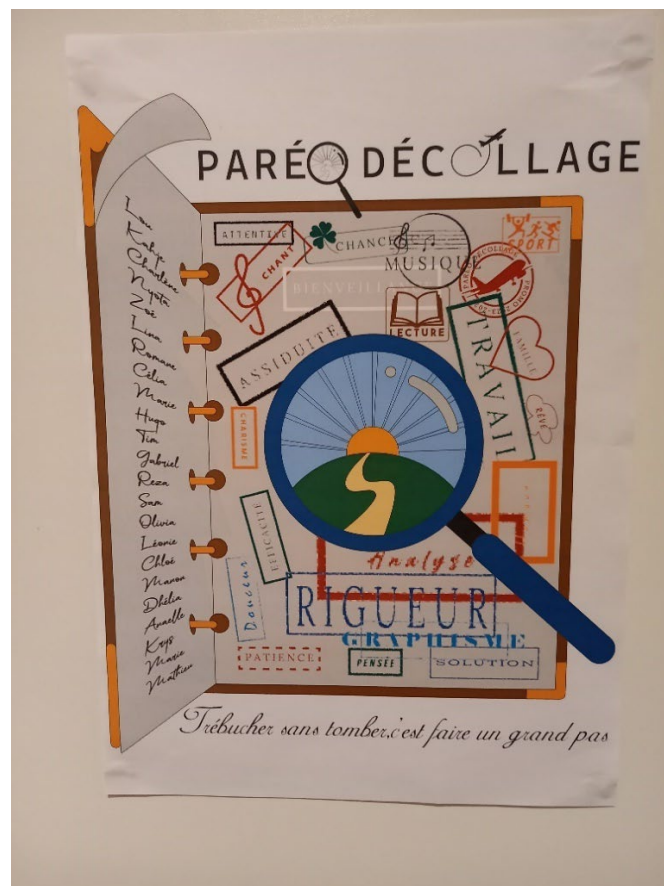 PARÉO DÉCOLLAGE
Lou
Charlène
Zoé
Lina
Romane
Célia
Marie
Hugo
Tia
Gabriel
Reza
Sam
Olivia
Léonie
Chloé
Manon
Dhélia
Armelle
Krys
Marie
Mathieu
ATTENTIVE
CHANT
CHANCE
MUSIQUE
SPORT
BIENVEILLANCE
LECTURE
PARÉO DÉCOLLAGE
PROMO
ASSIDUITE
TRAVAIL
FAMILLE
RÊVE
CHARISME
EFFICACITÉ
Analyse
Douceur
RIGUEUR
GRAPHISME
PATIENCE
PENSÉE
SOLUTION
Trébucher sans tomber,c'est faire un grand pas